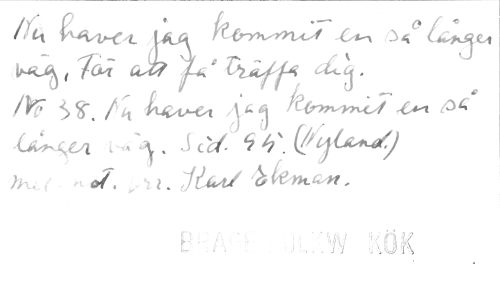 Nu haver jag kommit en så långer
väg, För att få träffa dig.
No 38. Nu haver jag kommit en så
långer väg. Sid. 45. (Nyland.)
mel. not. arr. Karl Ekman.
KÖK